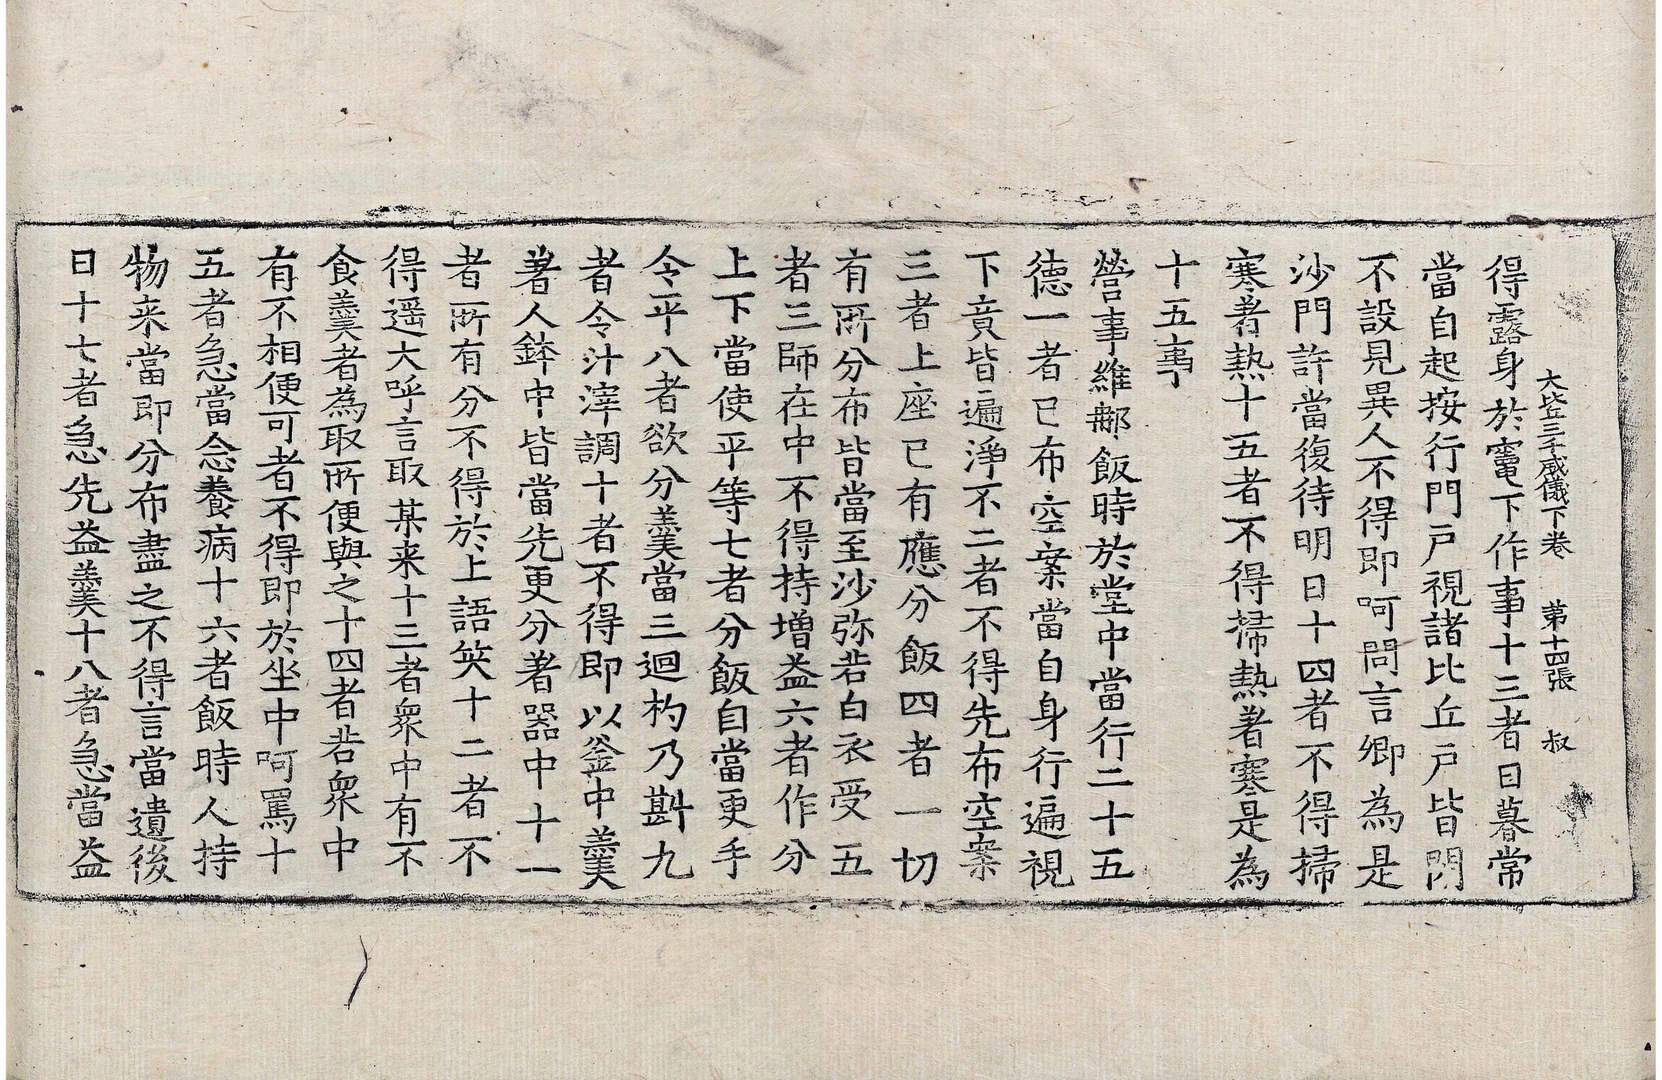 大比丘三千威儀下卷 第十四張 叔
得露身於竈下作事十三者日暮常
當自起按行門戶視諸比丘戶皆閇
不設見異人不得即呵問言卿為是
沙門許當復待明日十四者不得掃
寒著熱十五者不得掃熱著寒是為
十五事
營事維那飯時於堂中當行二十五
德一者已布空案當自身行遍視
下竟皆遍淨不二者不得先布空案
三者上座已有應分飯四者一切
有所分布皆當至沙弥若白衣受五
者三師在中不得持增益六者作分
上下當使平等七者分飯自當更手
令平八者欲分羹當三迴杓乃斟九
者令汁滓調十者不得即以釜中羹
著人鉢中皆當先更分著器中十一
者所有分不得於上語笑十二者不
得遥大呼言取某来十三者衆中有不
食羹者為取所便與之十四者若衆中
有不相便可者不得即於坐中呵罵十
五者急當念養病十六者飯時人持
物来當即分布盡之不得言當遺後
日十七者急先益羹十八者急當益